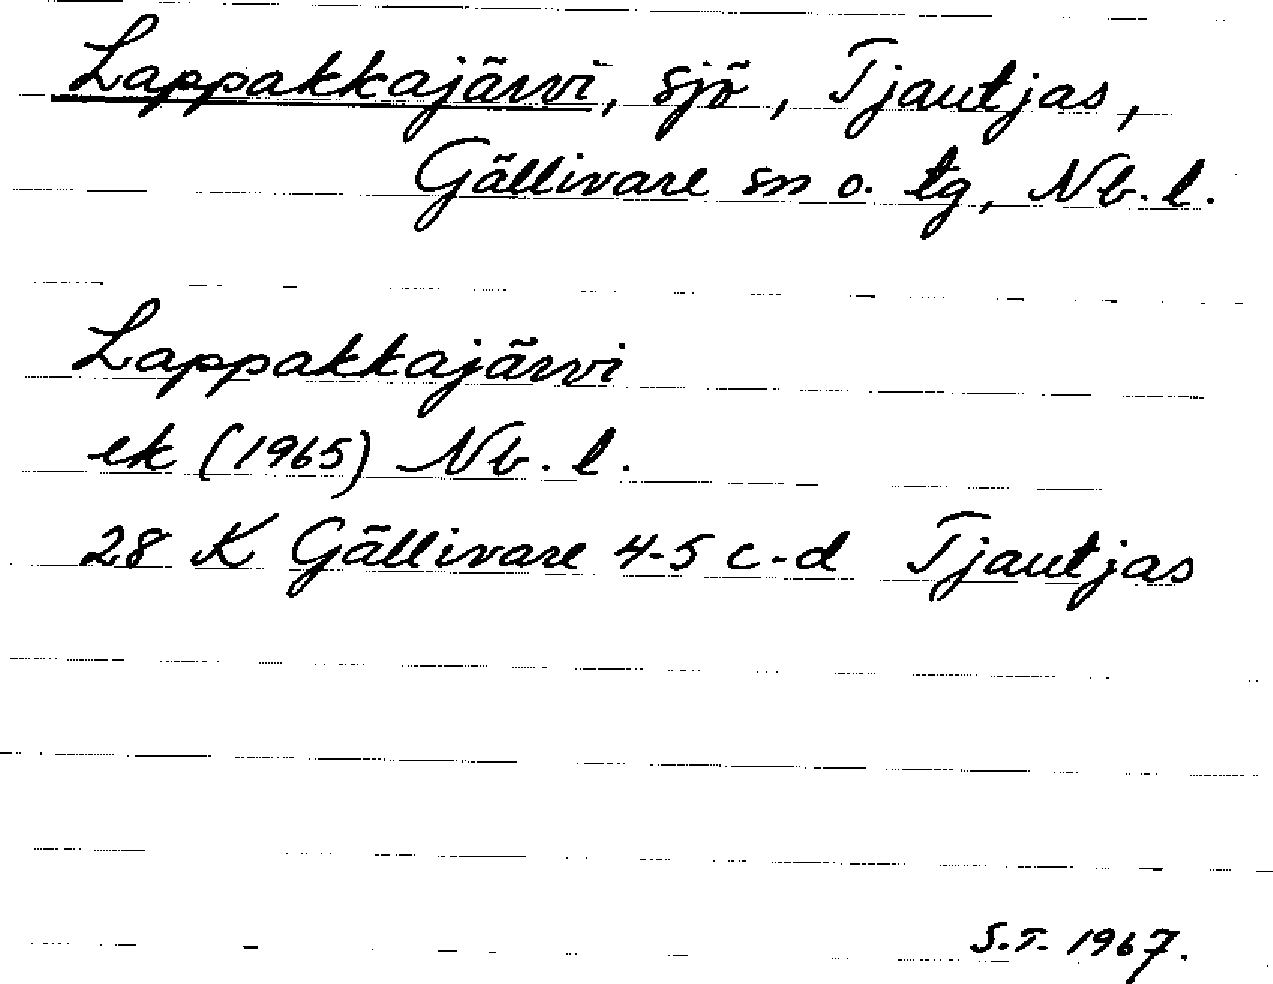 Lappakkajärvi, sjö, Tjautjas,
Gällivare sn o. tg, Nb. l.
Lappakkajärvi
ek (1965) Nb. l.
28 K Gällivare 4-5 c-d Tjautjas
S.T. 1967.